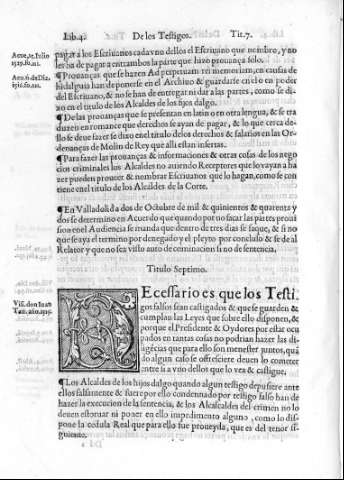 Lib.4. De los Testigos. Tit.7.
pagar a los Escriuanos cada vno dellos el Escriuano que nombro, y no
lleuan de pagar a entrambos la parte que hizo prouança sólo.
¶Prouanças que se hazen Ad perpetuam rei memoriam, en causas de
hidalguia han de ponerse en el Archiuo & guardarse en el o en poder
del Escriuano, & no se han de entregar ni dar a las partes, como se di-
zo en el titulo de los Alcaldes de los hijos dalgo.
¶De las prouanças que se presentan en latin o en otra lengua, & se tra
duzen en romance que derechos se ayan de pagar, & lo que cerca de-
llo se deue hazer se dixo en el titulo de los derechos & salarios en las Or-
denanças de Molin de Rey que alli estan insertas.
¶Para hazer las prouanças & informaciones & otras cosas de los nego
cios criminales los Alcaldes no auiendo Receptores que lo vayan a ha
zer pueden proueer & nombrar Escriuanos que lo hagan, como se con
tiene en el titulo de los Alcaldes de la Corte.
¶En Valladolid a dos de Octubre de mil & quinientos & quarenta y
dos se determino en Acuerdo que quando por no sacar las partes proui
sion en el Audiencia se manda que dentro de tres dias se saque, & si no
que se aya el termino por denegado y el pleyto por concluso & se de al
Relator y que no sea visto auto de cominacion si no de sentencia.
Titulo Septimo.
Ecessario es que los Testi-
gos falsos sean castigados & que se guarden &
cumplan las Leyes que sobre ello disponen, &
porque el Presidente & Oydores por estar ocu
pados en tantas cosas no podrian hazer las di-
ligēcias que para ello son menester juntos, quā
do algun caso se offresciere deuen lo cometer
entre si a vno dellos que lo vea & castigue,
¶Los Alcaldes de los hijos dalgo quando algun testigo depusiere ante
ellos falsamente & fuere por ello condennado por testigo falso han de
hazer la execucion de la sentencia, & los Alcaldes del crimen no lo
deuen estoruar ni poner en ello impedimento alguno, como lo dis-
pone la cedula Real que para ello fue proueyda, que es del tenor si-
guiente.